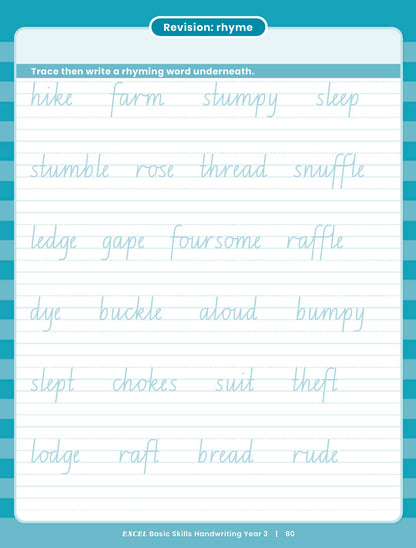 Revision: rhyme
Trace then write a rhyming word underneath.
hike farm stumpy sleep
stumble rose thread snuffle
ledge gape foursome raffle
dye buckle aloud bumpy
slept chokes suit theft
lodge raft bread rude
EXCEL Basic Skills Handwriting Year 3 | 80